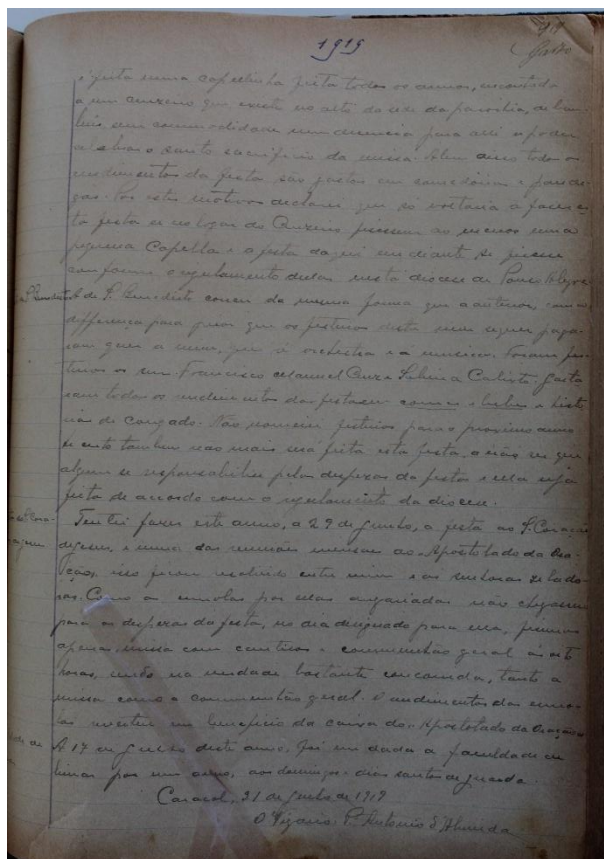 1919
é feita numa capellinha feita todos os annos, encostada
a um cruzeiro que existe no alto da sede da parochia, de
sem commodidade nem decencia para alli se poder
celebrar o santo sacrificio da missa. Alem disso todos os
rendimentos da festa são gastos em comedorias e
Por estes motivos declarei que só voltaria a fazer es-
ta festa se no logar do Cruzeiro fizessem ao menos uma
pequena Capella e a festa dagora em diante se fizesse
conforme o regulamento dellas nesta diocese de Pouso Alegre
A de S. Benedicto correu da mesma forma que a anterior, com a
differença para peior que os festeiros desta nem sequer paga-
ram quer a mim, quer a orchestra e a musica. Foram fes-
teiros os snr. Francisco Manuel Cruz e Sabina Calixto. Gasta
ram todos os rendimentos das festas em comes e bebes e
de congado. Não nomeei festeiros para o proximo anno
e esta tambem não mais será feita esta festa, a não ser que
alguem se responsabilise pelas despezas da festa e ella seja
feita de accordo com o regulamento da diocese.
Tentei fazer este anno, a 29 de Junho, a festa ao S. Coração
de Jesus, e numa das reuniões mensaes do Apostolado da Ora-
ção, isso ficou resolvido entre mim e as senhoras zelado-
ras. Como as esmolas por ellas angariadas não chegassem
para as despezas da festa, no dia designado para ella, fizemos
apenas missa com canticos e communhão geral ás oito
horas, sendo na verdade bastante concorrida, tanto a
missa como a communhão geral. O rendimento das esmo-
las reverteu em beneficio da caixa do Apostolado da Oração.
A 17 de Julho deste anno, foi me dada a faculdade de
binar por um anno, aos domingos e dias santos de guarda.
Caracol, 31 de Julho de 1919
O Vigario: P. Antonio d'Almeida